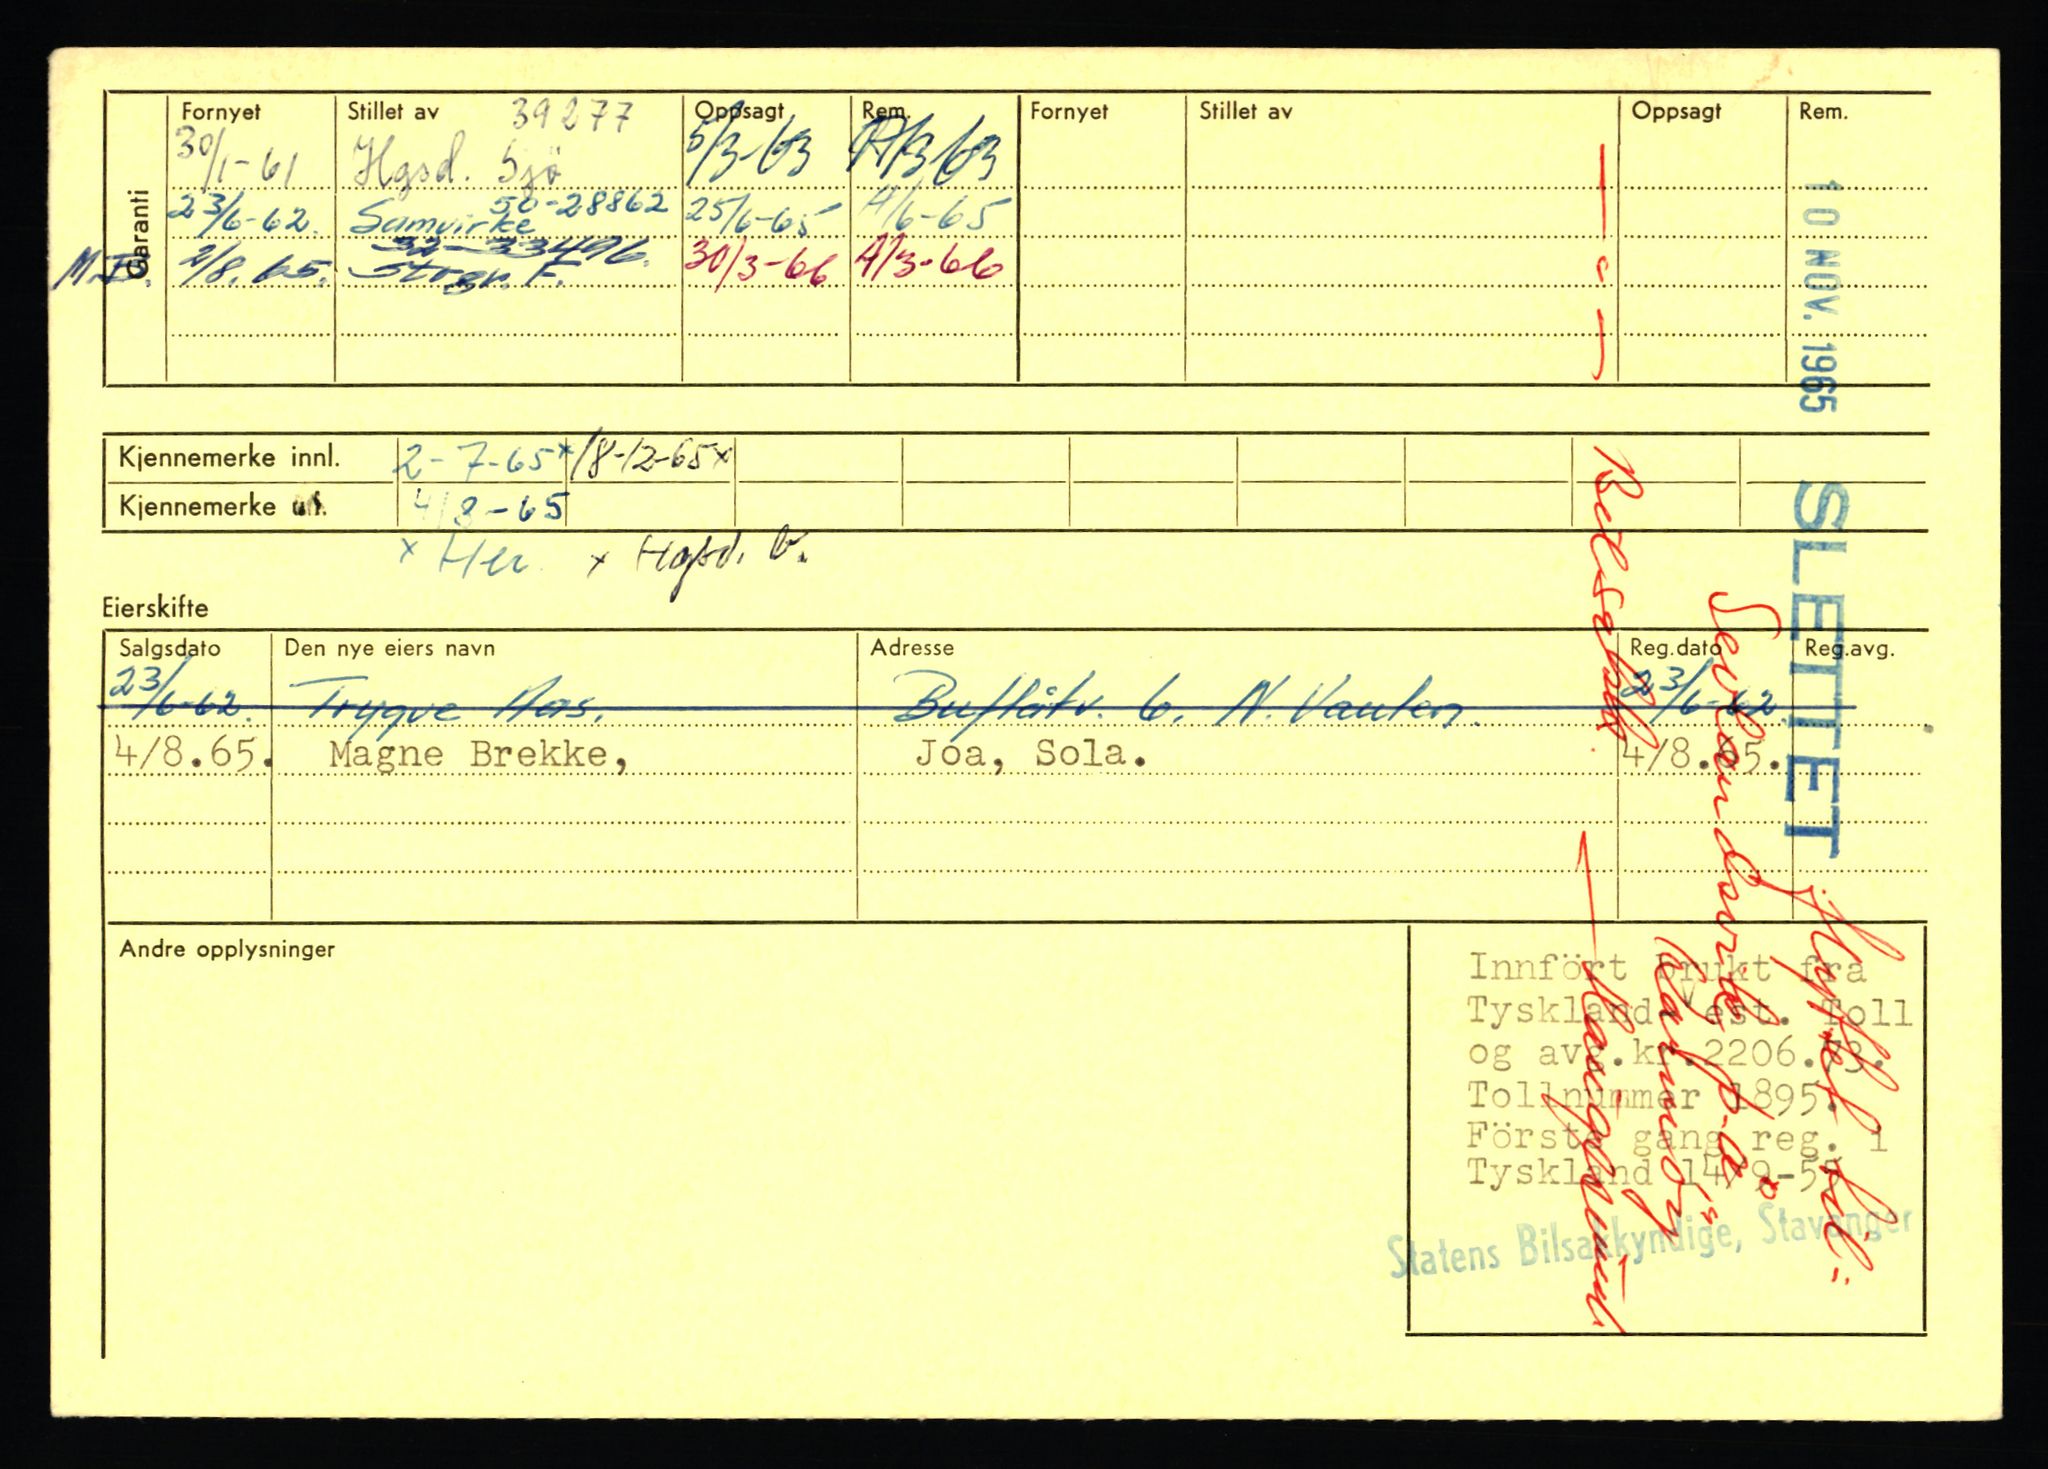 Fornyet Stillet av 39277 Oppsagt Rem. Fornyet Stillet av Oppsagt Rem.
Garanti
30/1-61 Hgsd. Sjö 5/3-63
23/6-62. Samvirke 50-28862 25/6-65 4/6-65
2/8.65. Storgr. F. 32-33496. 30/3-66 4/3-66
Kjennemerke innl. 2-7-65x 18-12-65x
Kjennemerke ut. 4/8-65
x Her x Hgsd. b.
Eierskifte
Salgsdato Den nye eiers navn Adresse Reg.dato Reg.avg.
23/6-62. Trygve Aas. Buflåtv. 6. N. Vaulen. 23/6-62
4/8.65. Magne Brekke, Joa, Sola. 4/8.65.
Andre opplysninger
Innfört brukt fra
Tyskland Vest. Toll
og avg.kr.2206.73.
Tollnummer 1895.
Förste gang reg. i
Tyskland 14/9-55
Statens Bilsakkyndige, Stavanger
10 NOV. 1965
SLETTET